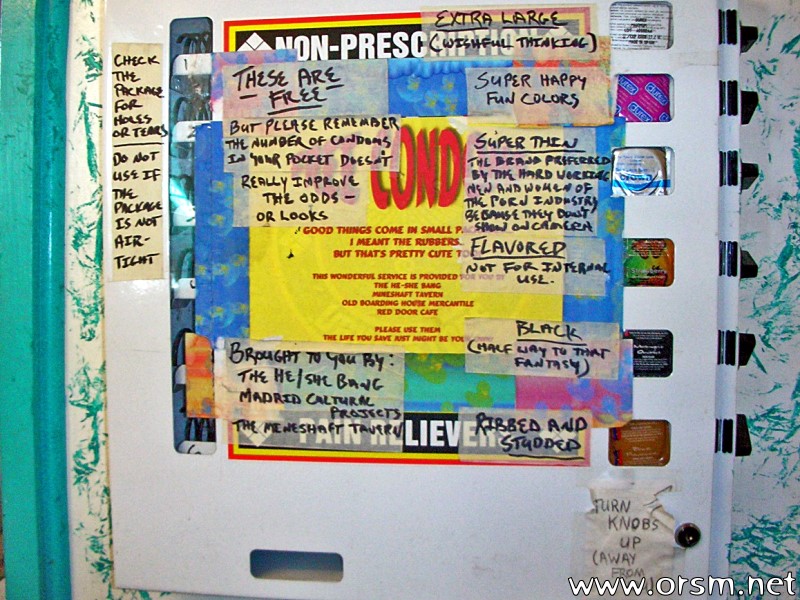 EXTRA LARGE
(WISHFUL THINKING)
NON-PRESC
CHECK
THE
PACKAGE
FOR
HOLES
OR TEARS
DO NOT
USE IF
THE
PACKAGE
IS NOT
AIR-
TIGHT
THESE ARE
FREE
BUT PLEASE REMEMBER
THE NUMBER OF CONDOMS
IN YOUR POCKET DOESN'T
REALLY IMPROVE
THE ODDS -
OR LOOKS
SUPER HAPPY
FUN COLORS
COND
SUPER THIN
THE BRAND PREFERRED
BY THE HARD WORKING
MEN AND WOMEN OF
THE PORN INDUSTRY
BECAUSE THEY DON'T
SHOW ON CAMERA
GOOD THINGS COME IN SMALL
I MEANT THE RUBBERS.
BUT THAT'S PRETTY CUTE
FLAVORED
NOT FOR INTERNAL
USE.
THIS WONDERFUL SERVICE IS PROVIDED FOR YOU BY
THE HE-SHE BANG
MINESHAFT TAVERN
OLD BOARDING HOUSE MERCANTILE
RED DOOR CAFE
PLEASE USE THEM
THE LIFE YOU SAVE JUST MIGHT BE YOU
BLACK
(HALF WAY TO THAT
FANTASY)
BROUGHT TO YOU BY:
THE HE/SHE BANG
MADRID CULTURAL
PROJECTS
THE MINESHAFT TAVERN
PAIN RELIEVER
RIBBED AND
STUDDED
TURN
KNOBS
UP
(AWAY
FROM
www.orsm.net